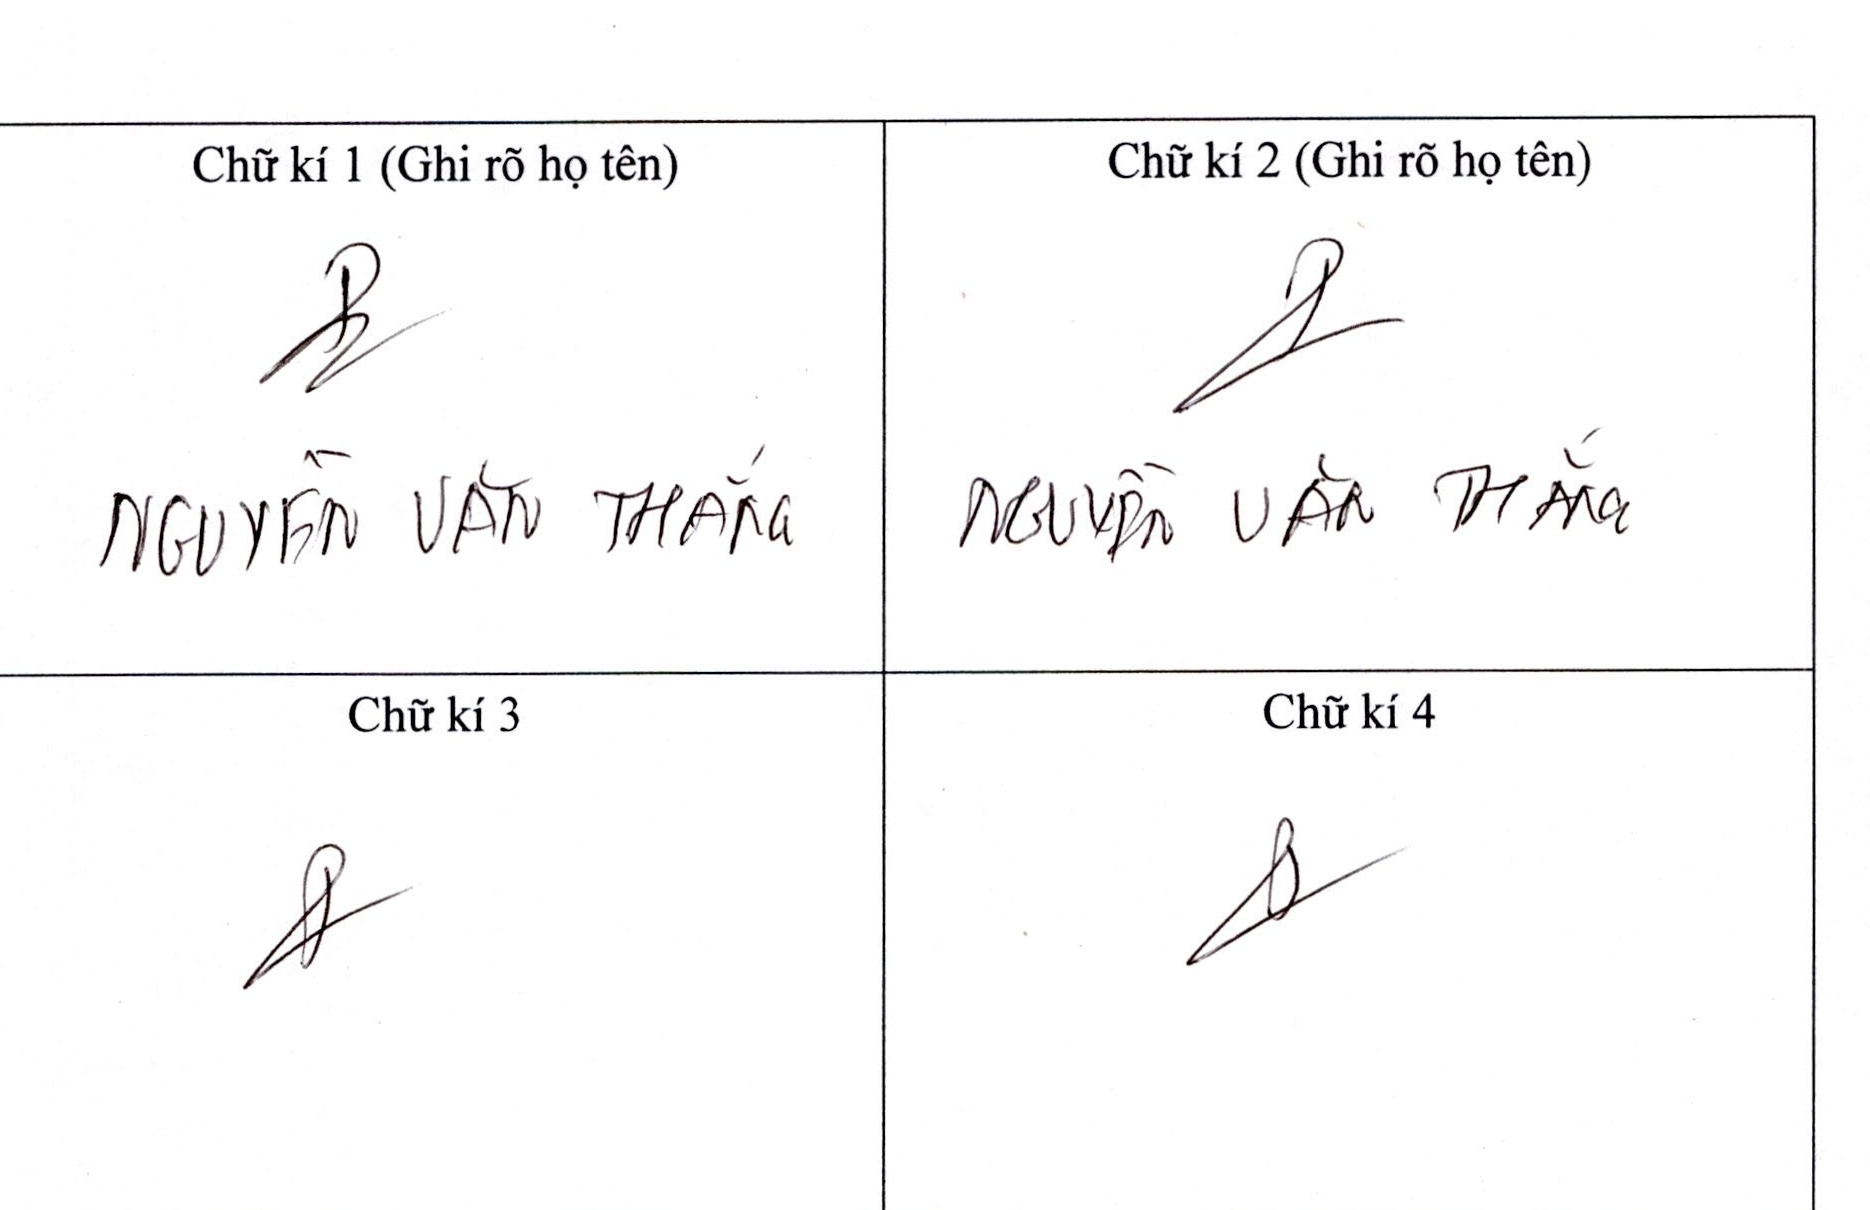 Chữ kí 1 (Ghi rõ họ tên)
Chữ kí 2 (Ghi rõ họ tên)
NGUYỄN VĂN THẮNG
NGUYỄN VĂN THẮNG
Chữ kí 3
Chữ kí 4